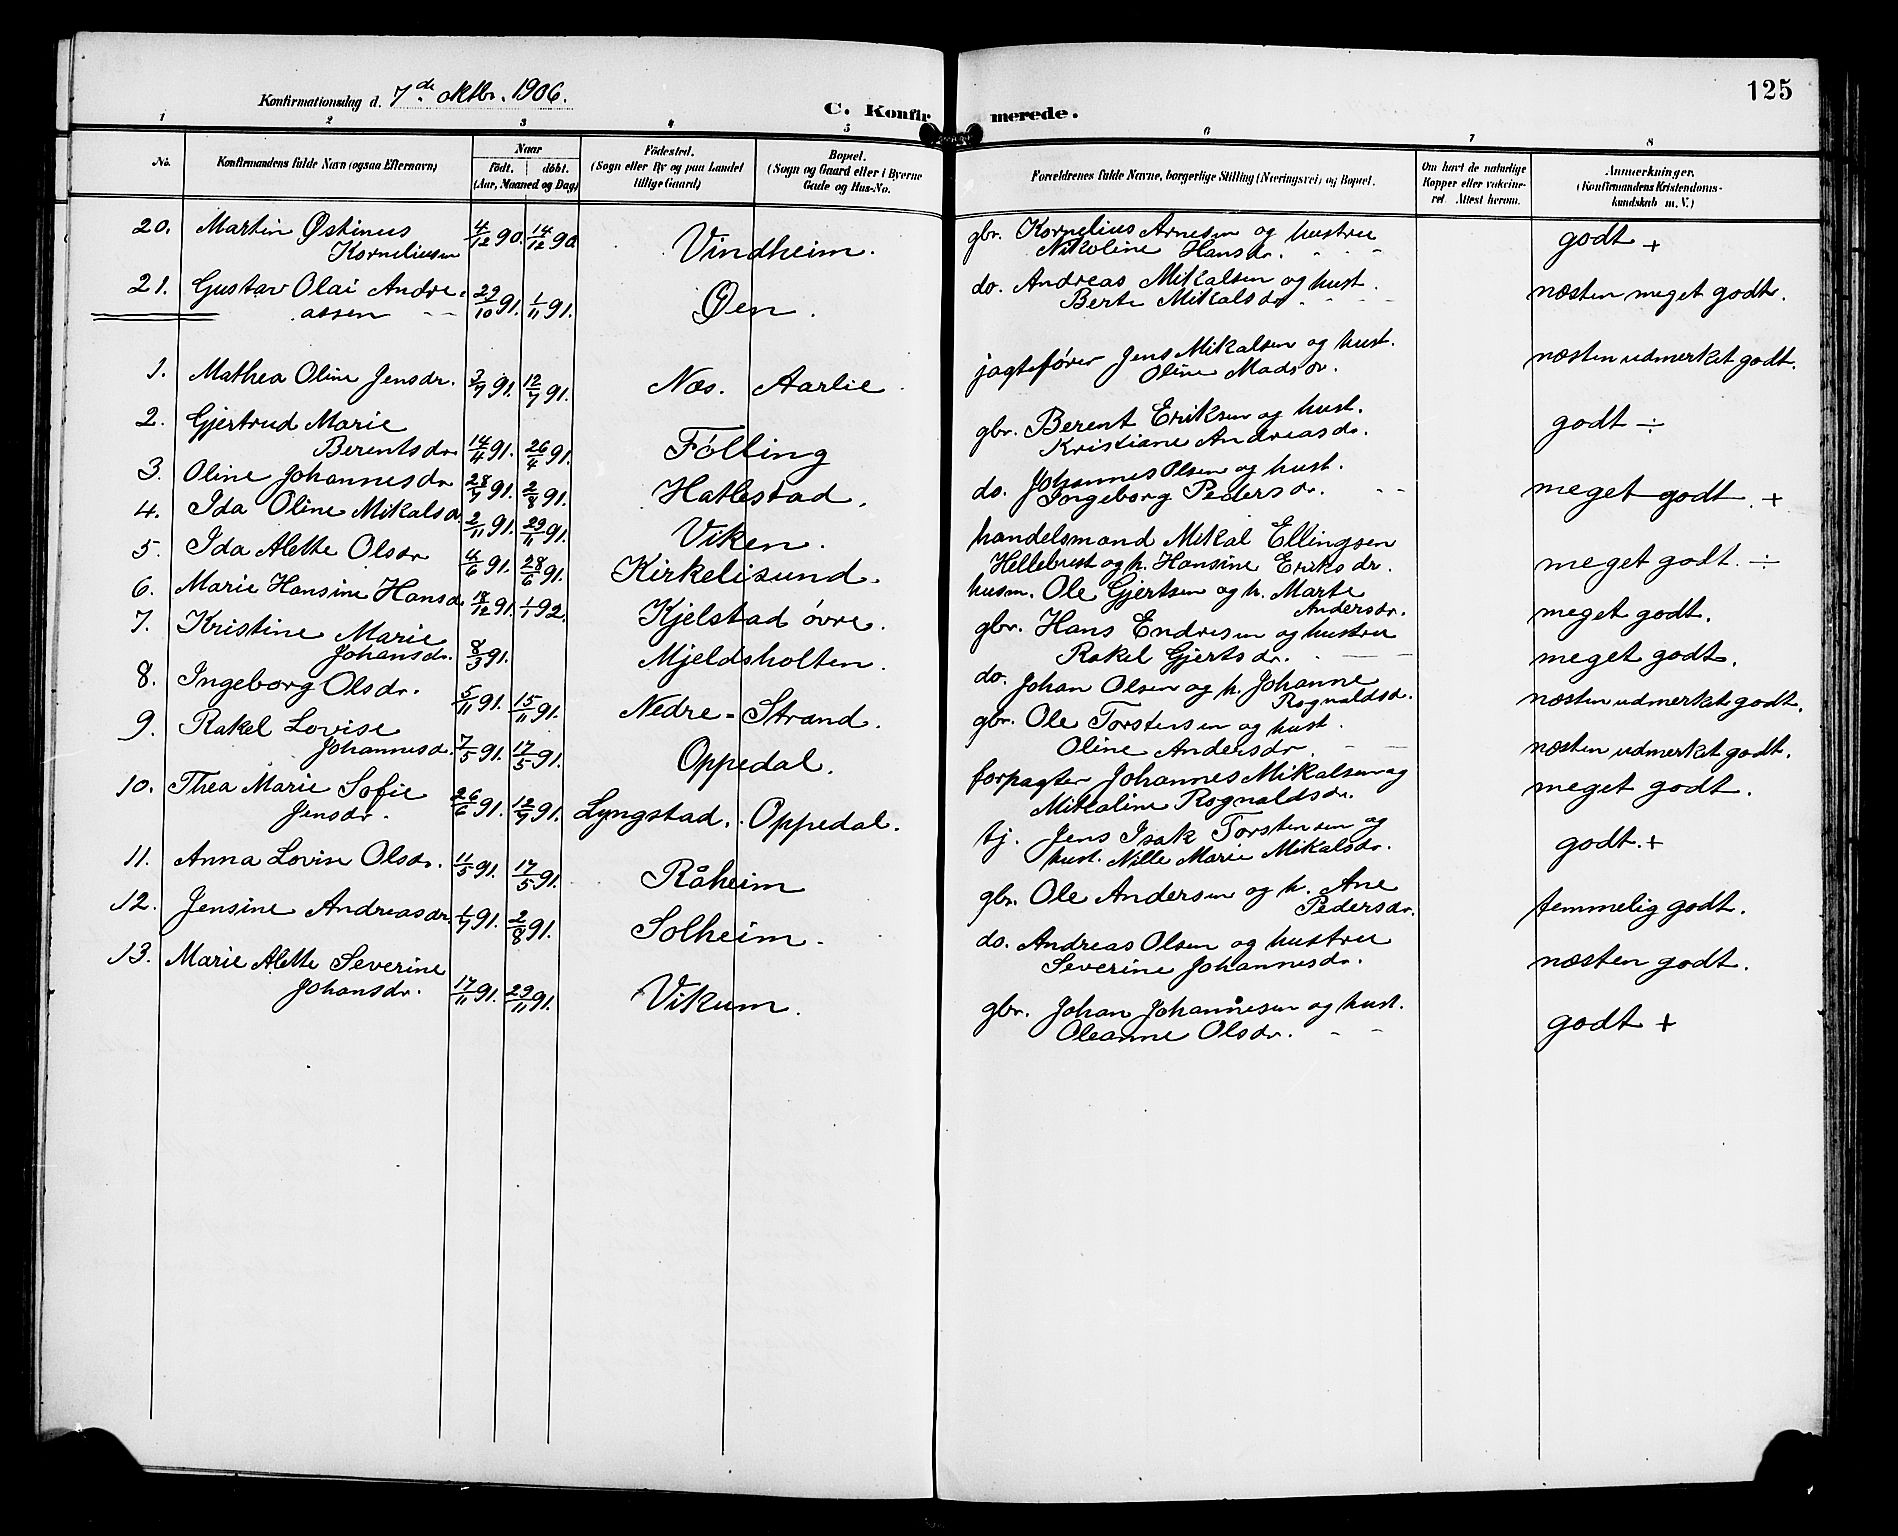 125
Konfirmationsdag d. 7de oktbr. 1906.
C. Konfirmerede.
1 2 3 4 5 6 7 8
No.
Konfirmandens fulde Navn (ogsaa Efternavn)
Naar
født. døbt.
(Aar, Maaned og Dag)
Fødested.
(Sogn eller By og paa Landet
tillige Gaard)
Bopæl.
(Sogn og Gaard eller i Byerne
Gade og Hus-No.
Forældrenes fulde Navne, borgerlige Stilling (Næringsvei) og Bopæl.
Om havt de naturlige
Kopper eller vakcine-
ret. Attest herom.
Anmerkninger.
(Konfirmandens Kristendoms-
kundskab m. V.)
20. Martin Østinus 4/12 90. 14/12 90 Vindheim. gbr. Kornelius Arnesen og hustru godt +
Korneliussen Nikoline Hansdr.
21. Gustav Olai Andre- 29/10 91. 1/11 91. Øen. do. Andreas Mikalsen og hust. næsten meget godt.
assen Berte Mikalsdr.
1. Mathea Oline Jensdr. 3/7 91. 12/7 91. Næs. Aarlie. jagtefører Jens Mikalsen og hust. næsten udmerket godt.
Oline Madsdr.
2. Gjertrud Marie gbr. Berent Eriksen og hust. godt ÷
Berentsdr. 14/4 91. 26/4 91. Fólling Kristiane Andreasdr.
3. Oline Johannesdr. 28/7 91. 2/8 91. Hatlestad. do. Johannes Olsen og hust. meget godt. +
Ingeborg Pedersdr.
4. Ida Oline Mikalsdr. 2/11 91. 29/11 91. Viken. handelsmand Mikal Ellingsen meget godt. ÷
Hellebust og h. Hansine Eriksdr.
5. Ida Alette Olsdr. 4/6 91. 28/6 91. Kirkelisund. husm. Ole Gjertsen og h. Marte meget godt.
Andersdr.
6. Marie Hansine Hansdr. 18/12 91. 1/1 92. Kjelstad óvre. gbr. Hans Endresen og hustru meget godt.
Rakel Gjertsdr.
7. Kristine Marie
Johansdr. 8/3 91. Mjeldsholten. do. Johan Olsen og h. Johanne næsten udmerket godt.
Rognaldsdr.
8. Ingeborg Olsdr. 5/11 91. 15/11 91. Nedre-Strand. gbr. Ole Torstensen og hust. næsten udmerket godt.
Oline Andersdr.
9. Rakel Lovise
Johannesdr. 7/5 91. 17/5 91. Oppedal. forpagter Johannes Mikalsen og meget godt.
Mikaline Rognaldsdr.
10. Thea Marie Sofie 26/6 91. 12/7 91. Lyngstad. Oppedal. tj. Jens Isak Torstensen og godt. +
Jensdr. hust. Nille Marie Mikalsdr.
11. Anna Lovise Olsdr. 11/5 91. 17/5 91. Råheim gbr. Ole Andersen og h. Ane temmelig godt.
Pedersdr.
12. Jensine Andreasdr. 1/7 91. 2/8 91. Solheim. do. Andreas Olsen og hustru næsten godt.
Severine Johannesdr.
13. Marie Alette Severine
Johansdr. 17/11 91. 29/11 91. Vikum. gbr. Johan Johannesen og hust. godt +
Oleanne Olsdr.